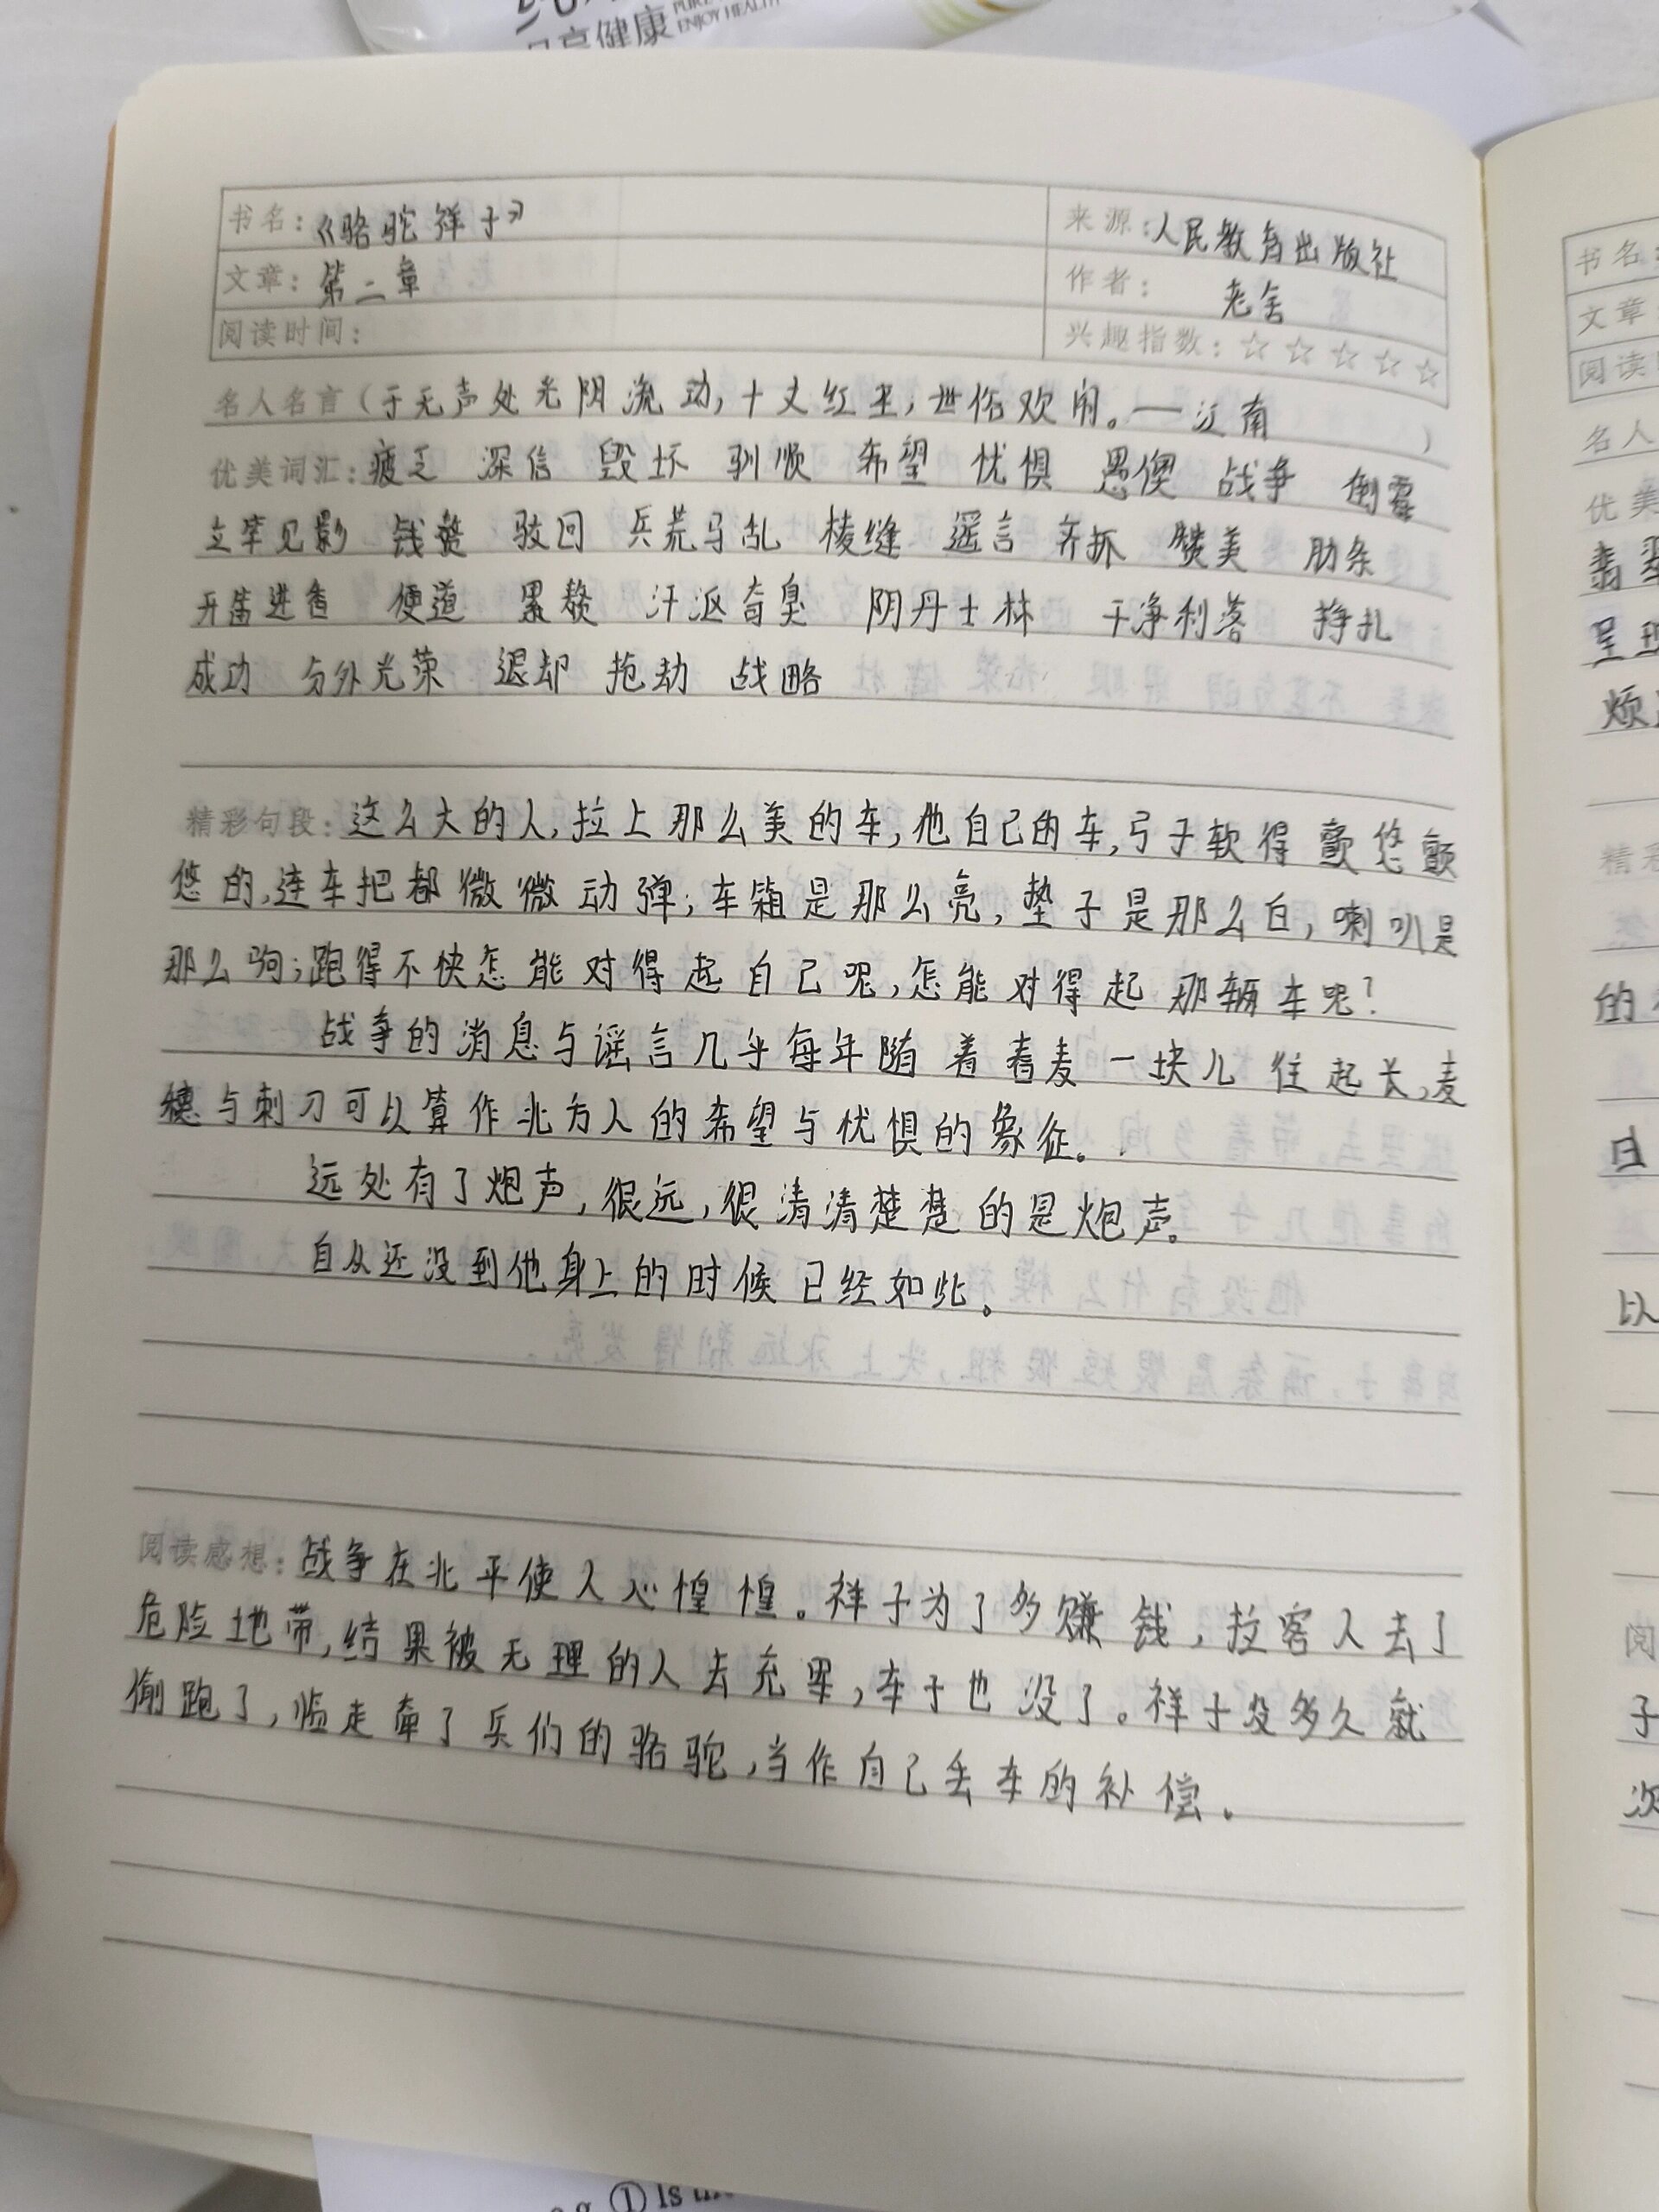 健康
ENJOY HEALTH
书名：《骆驼祥子》 来源：人民教育出版社
文章：第二章 作者：老舍
阅读时间： 兴趣指数：☆☆☆☆☆
名人名言（于无声处光阴流动，十丈红尘，世俗欢闹。——江南）
优美词汇：疲乏 深信 毁坏 驯顺 希望 忧惧 愚傻 战争 倒霉
立竿见影 钱赘 驳回 兵荒马乱 棱缝 谣言 齐抓 赞美 肋条
开苗进香 便道 累赘 汗沤奇臭 阴丹士林 干净利落 挣扎
成功 分外光荣 退却 抢劫 战略
精彩句段：这么大的人，拉上那么美的车，他自己的车，弓子软得颤悠颤
悠的，连车把都微微动弹；车箱是那么亮，垫子是那么白，喇叭是
那么响；跑得不快怎能对得起自己呢，怎能对得起那辆车呢？
战争的消息与谣言几乎每年随着春麦一块儿往起长，麦
穗与刺刀可以算作北方人的希望与忧惧的象征。
远处有了炮声，很远，很清清楚楚的是炮声。
自从还没到他身上的时候已经如此。
阅读感想：战争在北平使人心惶惶。祥子为了多赚钱，拉客人去了
危险地带，结果被无理的人去充军，车子也没了。祥子没多久就
偷跑了，临走牵了兵们的骆驼，当作自己丢车的补偿。
书名
文章
阅读
名人
优美
翡翠
呈现
烦
精彩
的
日
以
阅
子
次
e.g. ① Is